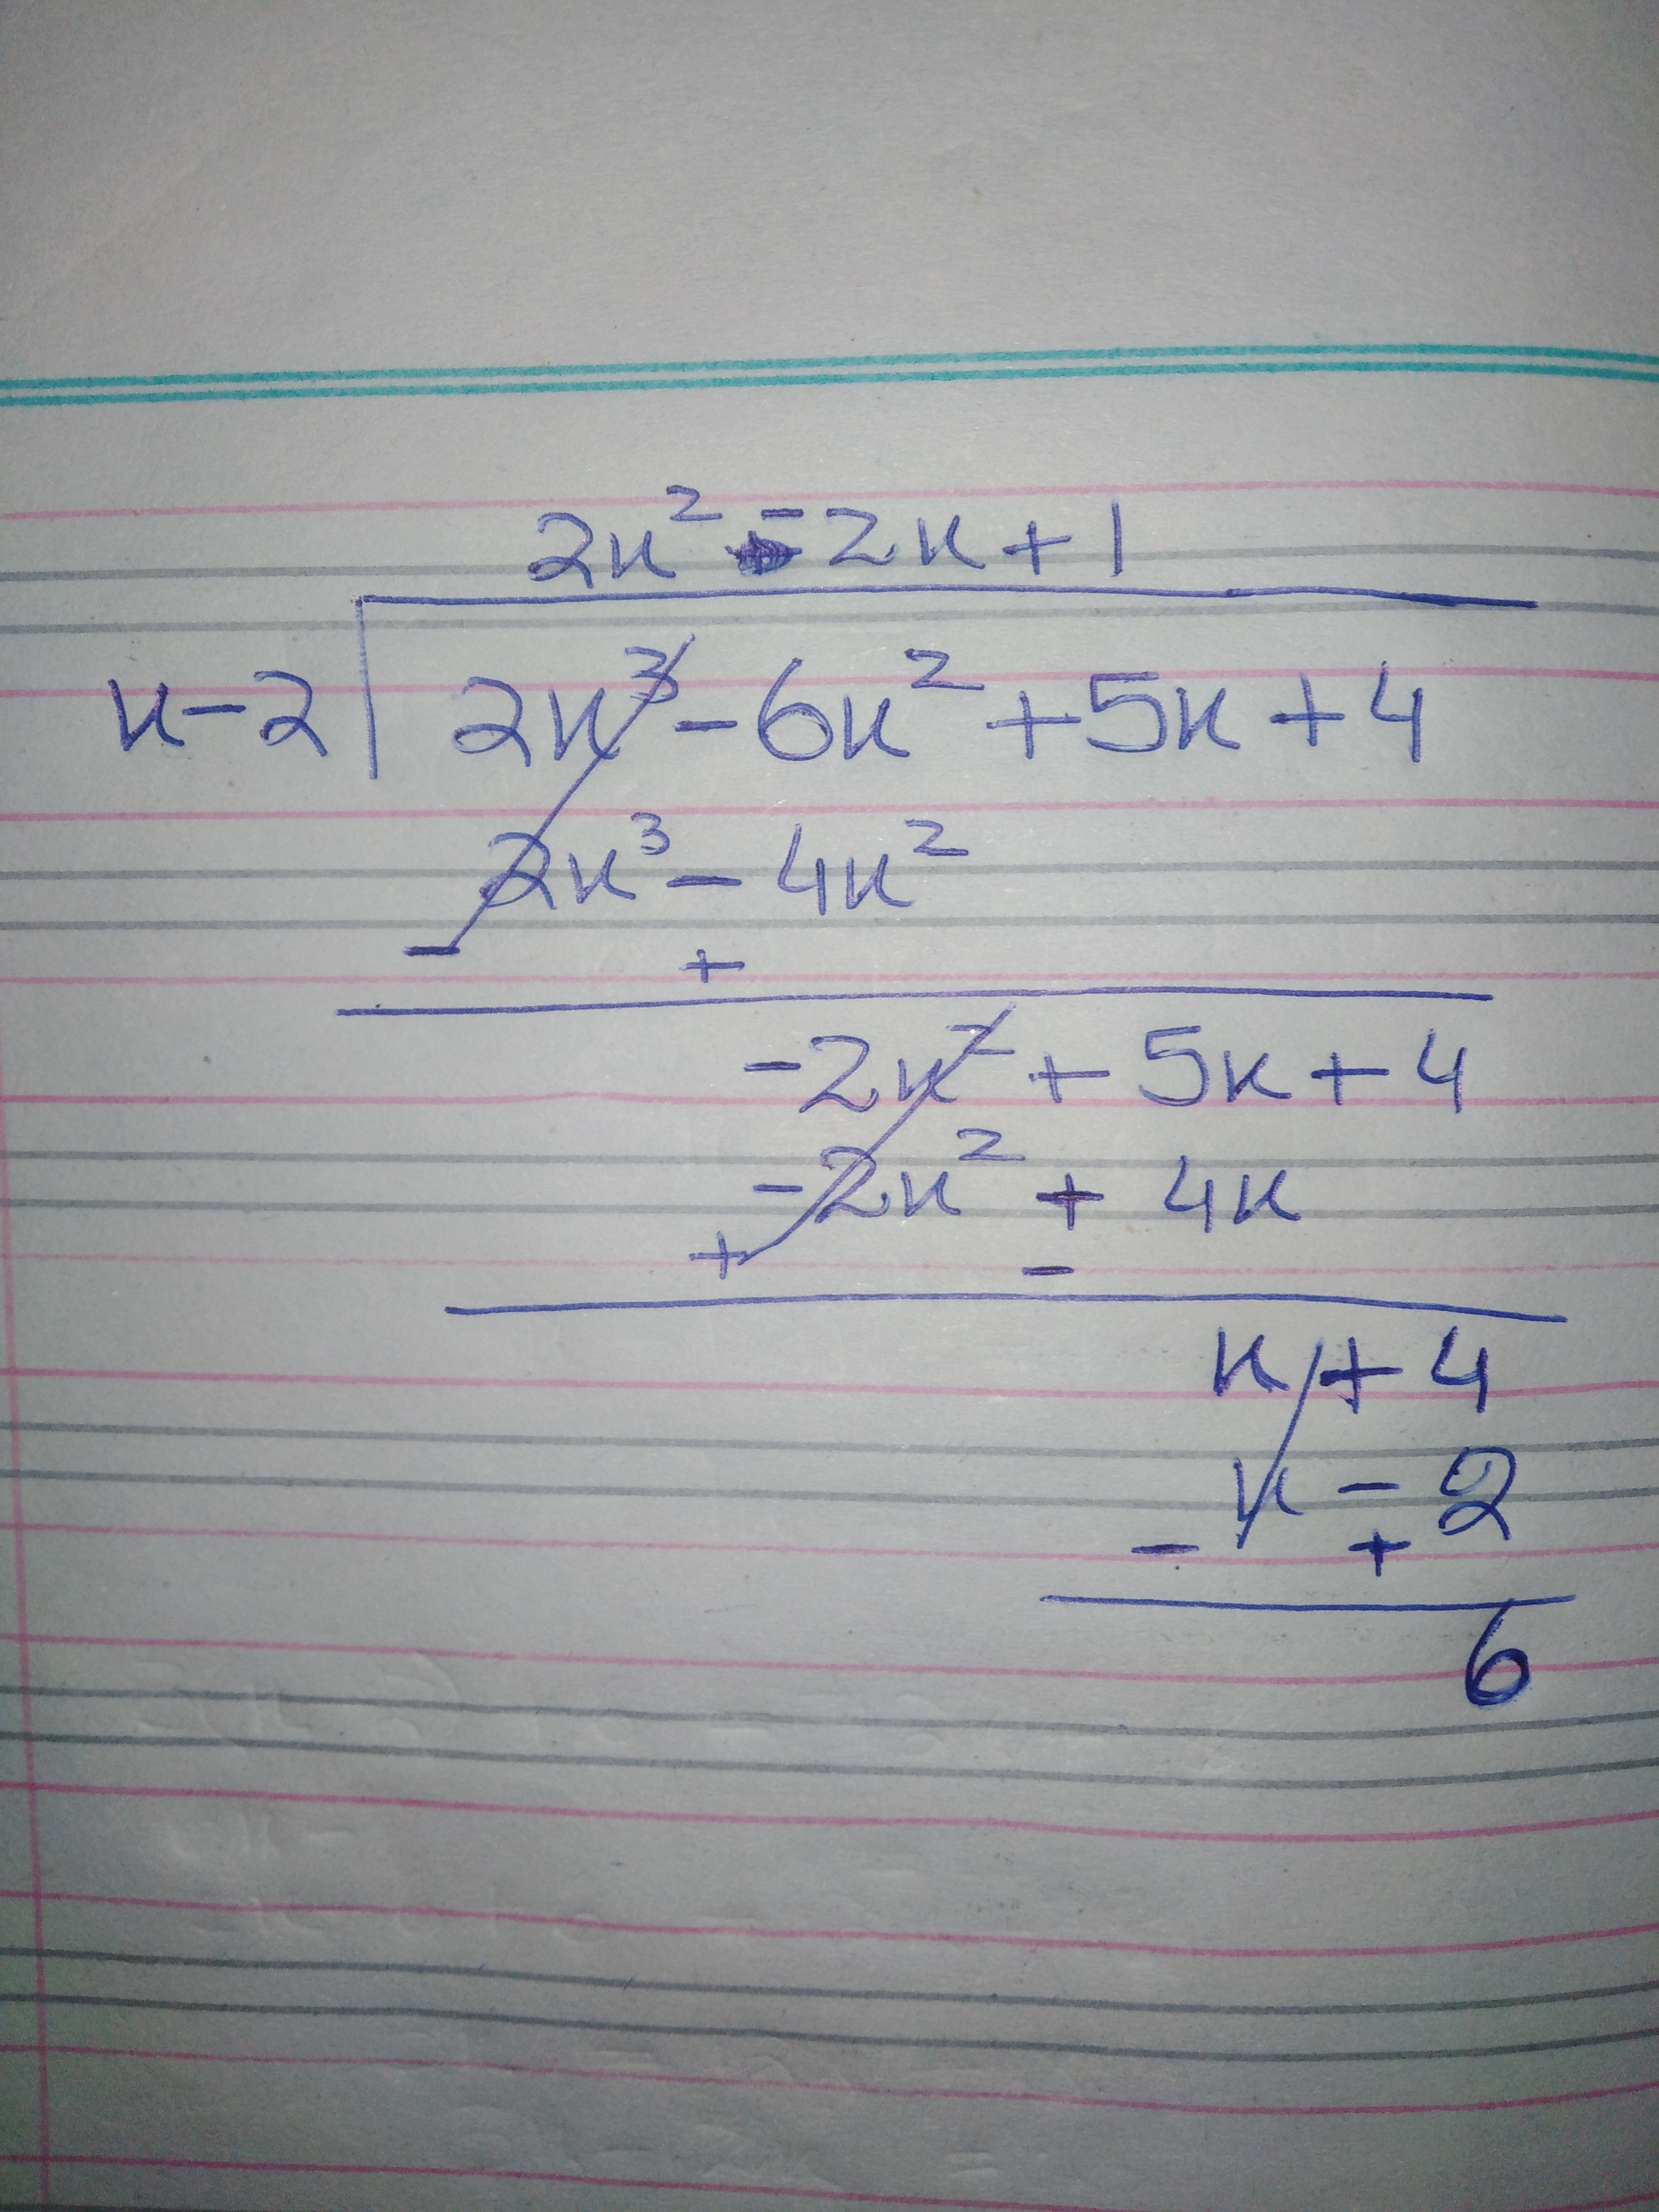 2x² - 2x + 1
x - 2 2x³ - 6x² + 5x + 4
2x³ - 4x²
- +
-2x² + 5x + 4
-2x² + 4x
+ -
x + 4
x - 2
- +
6